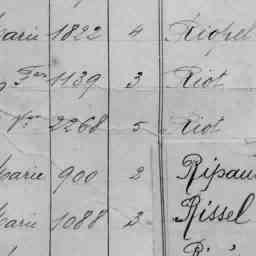 Marie 1822 4 Riopel
1139 3 Riot
2268 5 Riot
Marie 900 2 Ripau
Marie 1088 3 Rissel